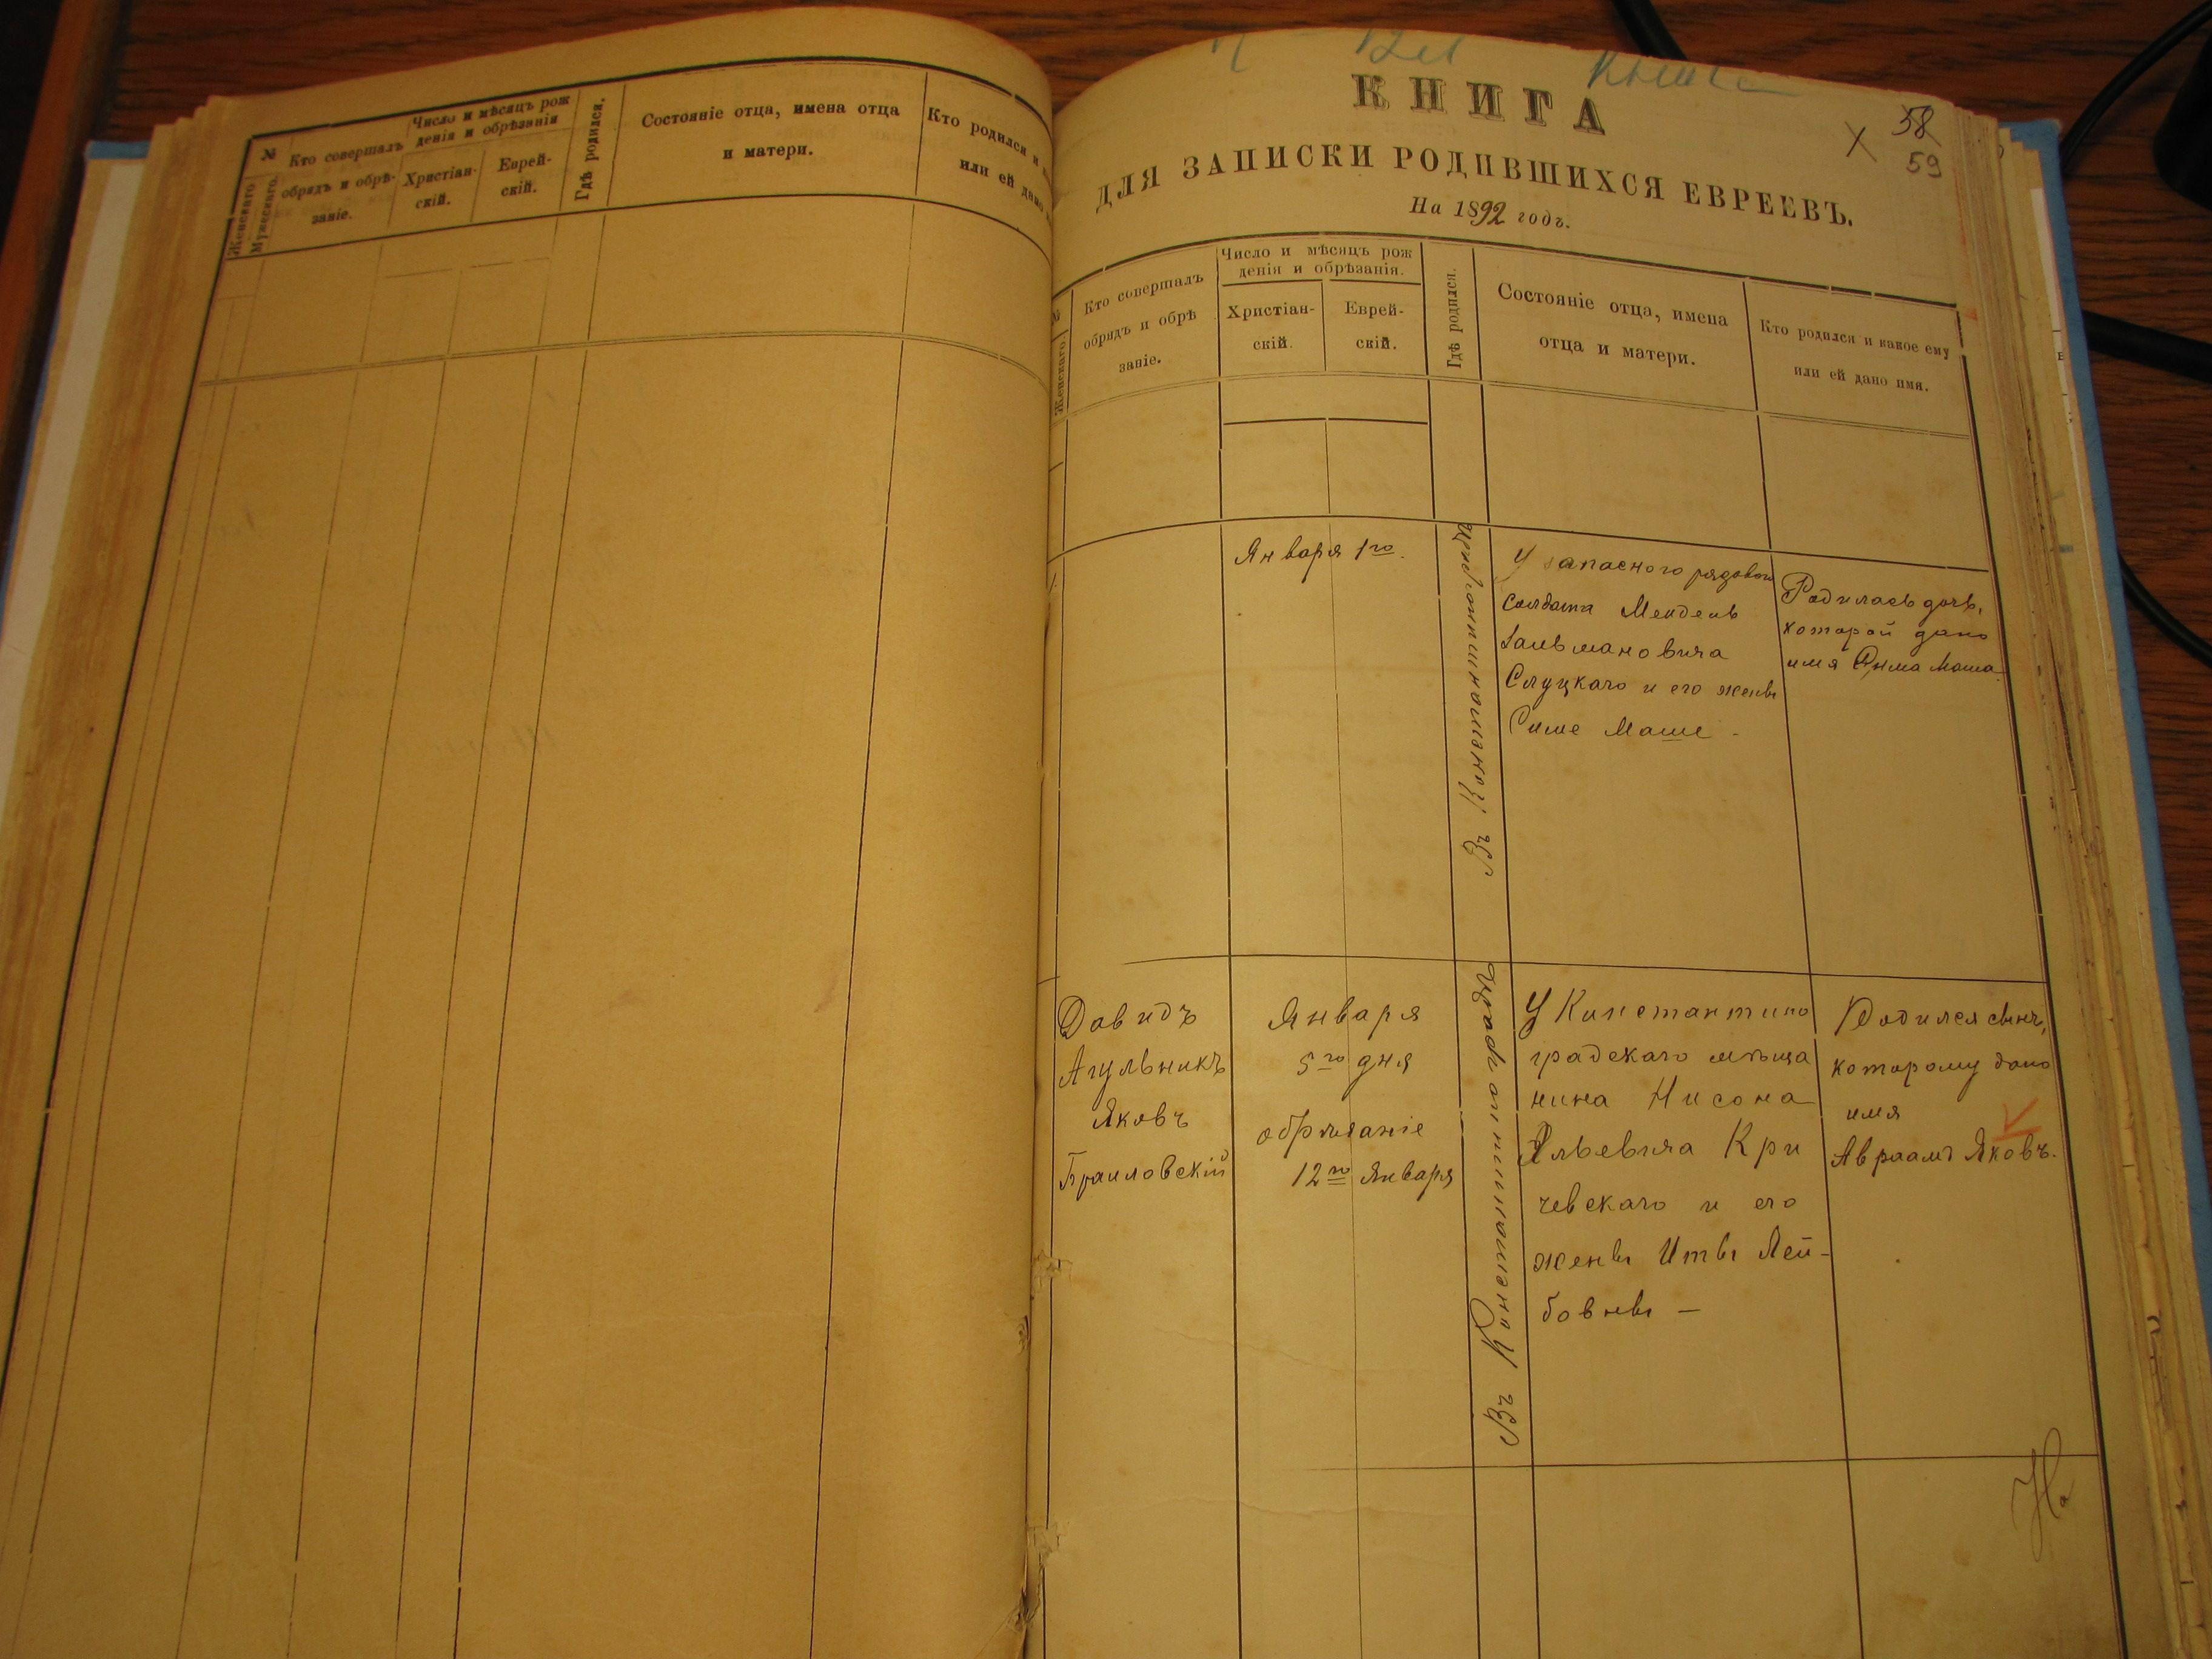 №
Женскаго.
Мужескаго.
Кто совершалъ
обрядъ и обрѣ-
заніе.
Число и мѣсяцъ рож
денія и обрѣзанія
Христіан-
скій.
Еврей-
скій.
Гдѣ родился.
Состояніе отца, имена отца
и матери.
Кто родился и
или ей дано
КНИГА
58
59
ДЛЯ ЗАПИСКИ РОДИВШИХСЯ ЕВРЕЕВЪ.
На 1892 годъ.
№
Женскаго.
Кто совершалъ
обрядъ и обрѣ
заніе.
Число и мѣсяцъ рож
денія и обрѣзанія.
Христіан-
скій.
Еврей-
скій.
Гдѣ родился.
Состояніе отца, имена
отца и матери.
Кто родился и какое ему
или ей дано имя.
Января 1го.
Въ Константиноградѣ
У запасного рядового
солдата Мендель
Зальмановича
Слуцкаго и его жены
Симе Маше -
Родилась дочь,
которой дано
имя Маша
Давидъ
Агульникъ
Яковъ
Браиловскій
Января
5го дня
обрѣзаніе
12го Января
Въ Константиноградѣ
У Константино
градскаго мѣща
нина Нисона
Ильевича Кри
чевскаго и его
жены Иты Лей-
бовны —
Родился сынъ,
которому дано
имя
Авраамъ Яковъ.